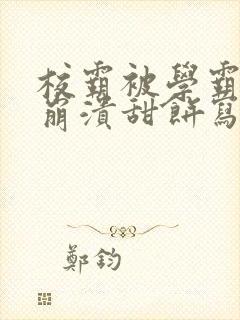 校霸被學霸
崩潰甜餅寫
鄭鈞